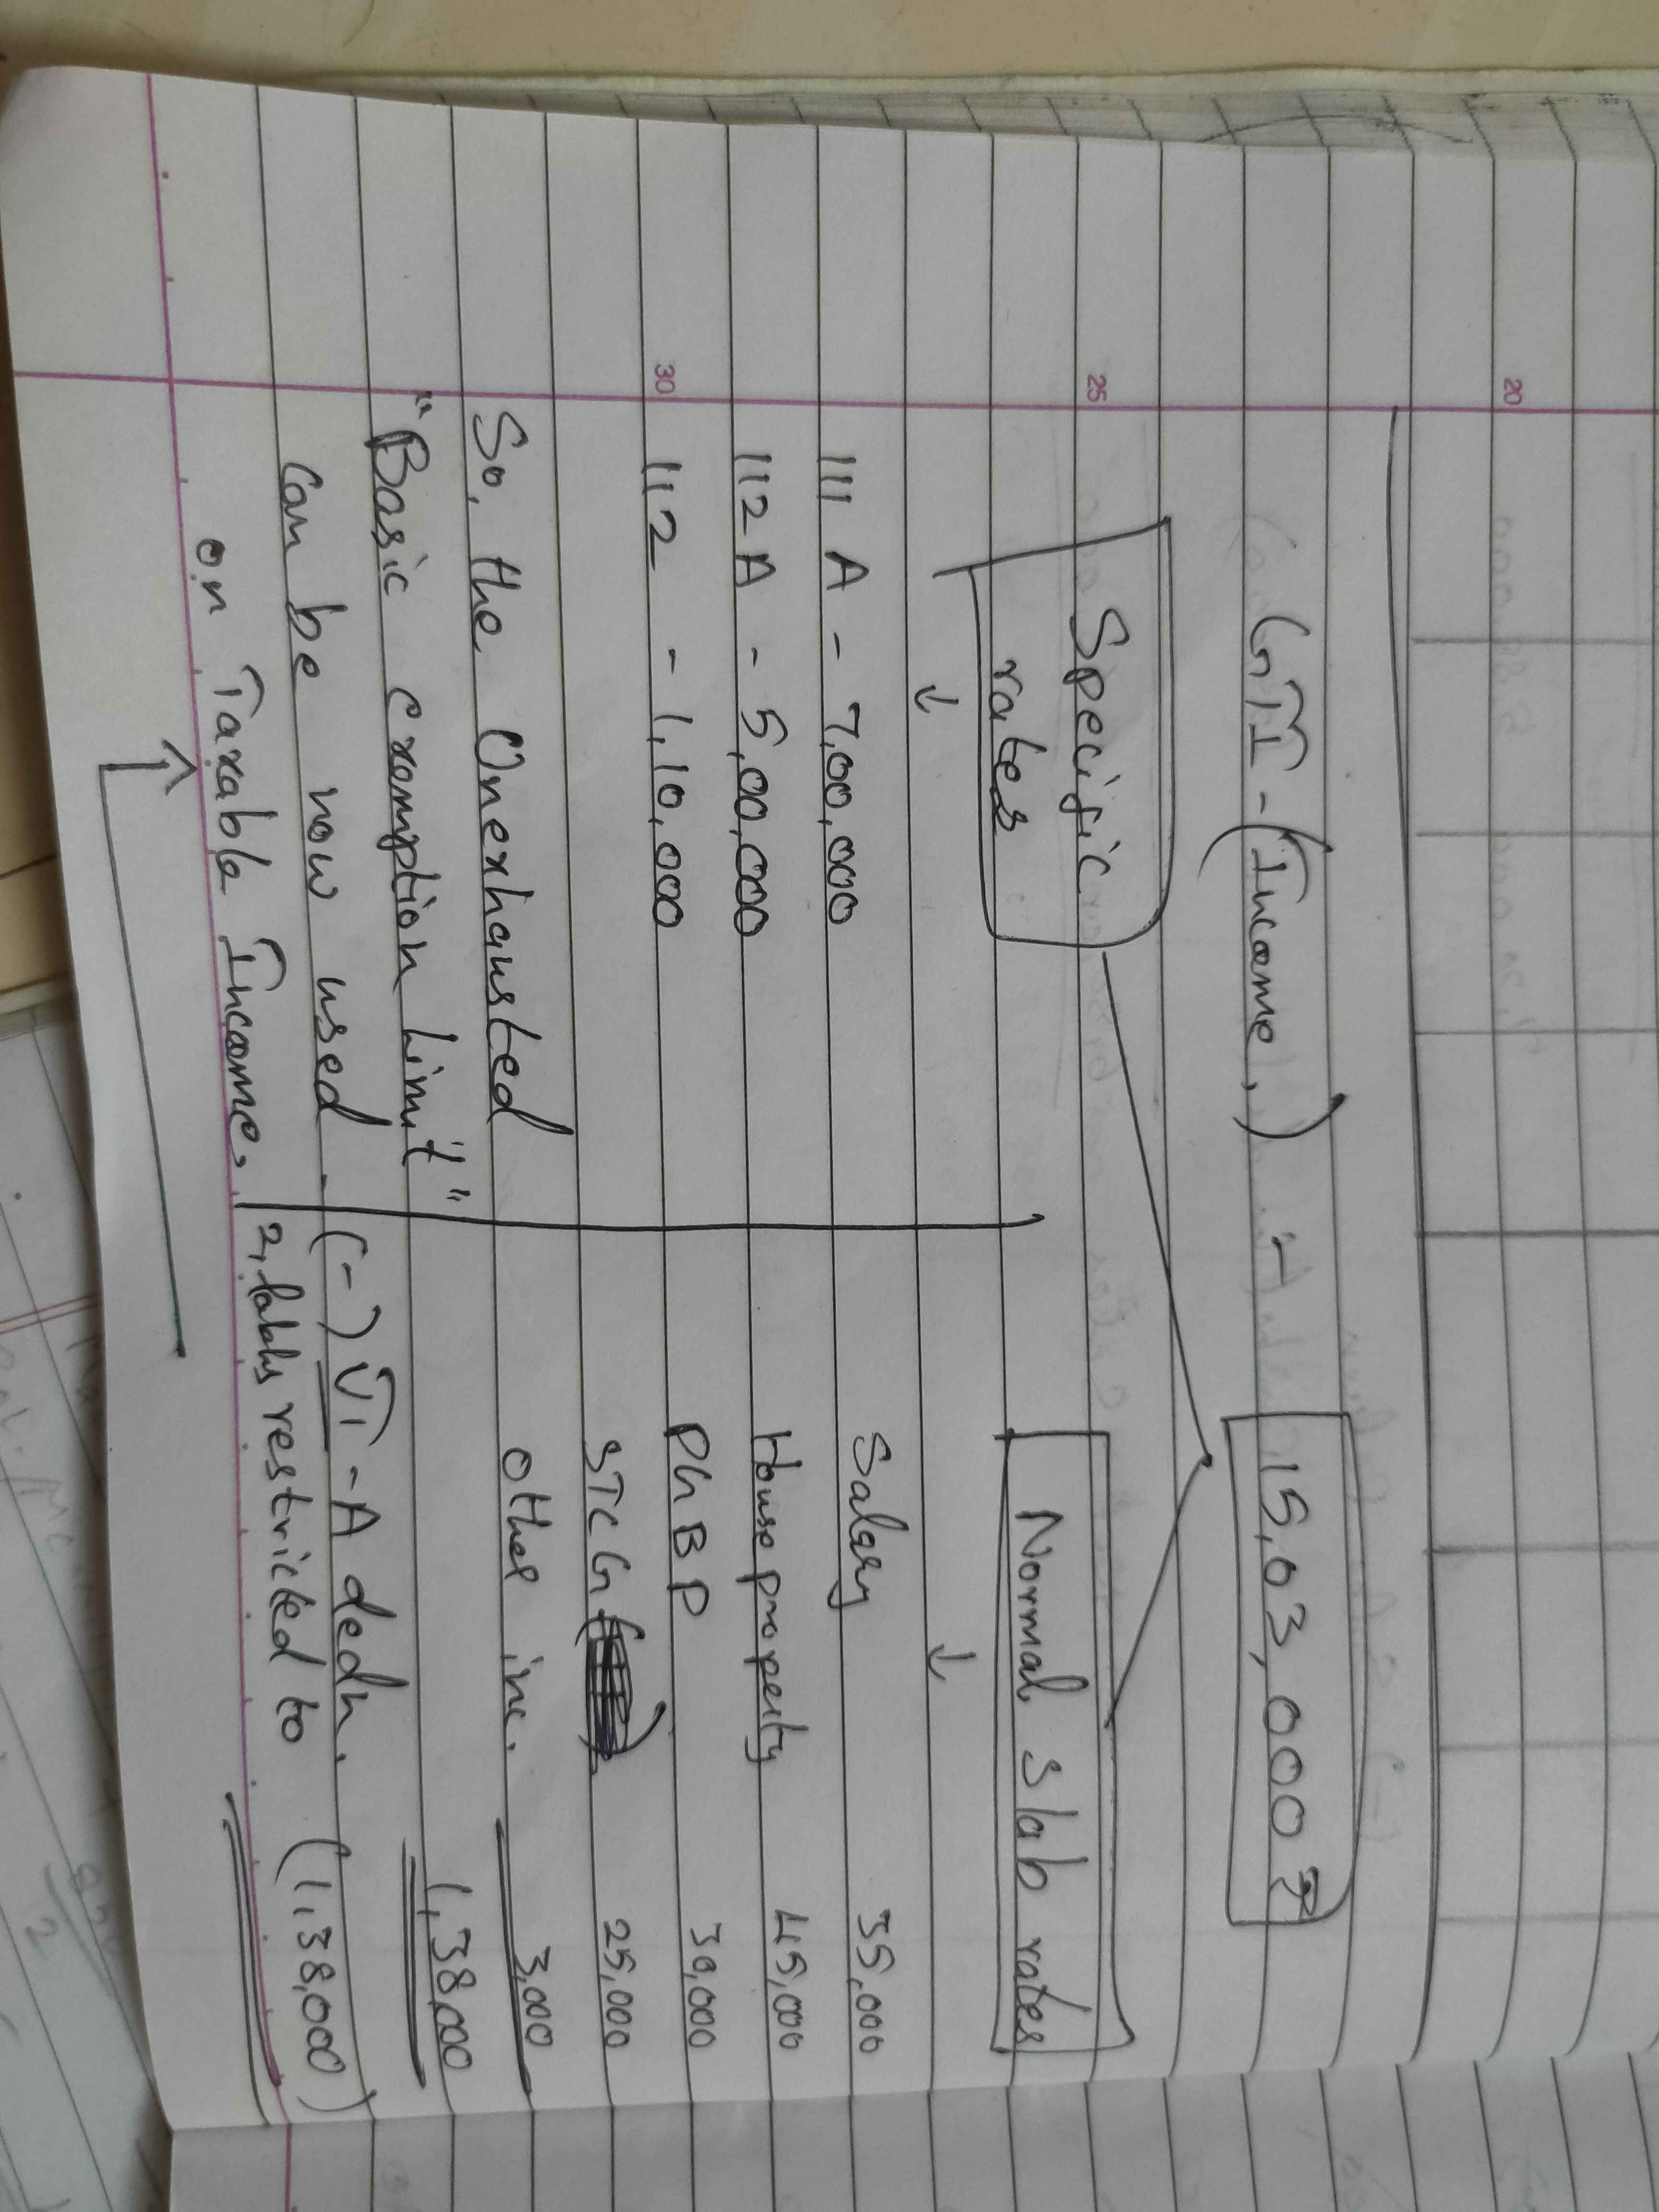 20
GTI - (Income,) :- 15,03,000 ₹
25
Specific
rates
Normal slab rates
↓
↓
111 A - 7,00,000
Salary 35,000
112 A - 5,00,000
House property 45,000
30
112 - 1,10,000
PGBP 30,000
STCG 25,000
So, the Unexhausted
other inc. 3,000
"Basic exemption limit"
1,38,000
can be now used
(-) VI-A dedn.
on Taxable Income.
restricted to (1,38,000)